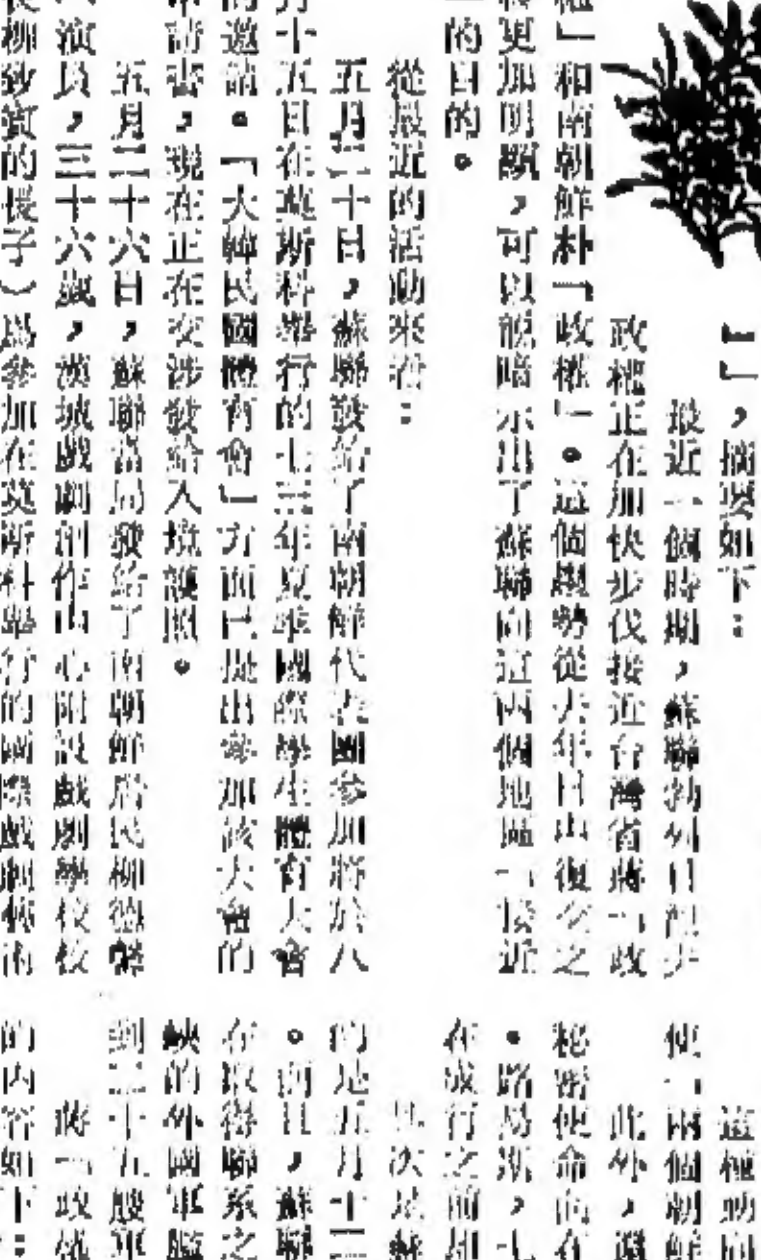 」，摘要如下：
最近一個時期，蘇聯勃列日
政權正在加快步伐接近台灣省蔣「政
權」和南朝鮮朴「政權」。這個趨勢從去年日中復交之
更加明顯，可以說暗示出了蘇聯向這兩個地區「接近
的目的。
從最近的活動來看：
五月二十日，蘇聯發給了南朝鮮代表團參加將於八
月十五日在莫斯科舉行的七三年夏季國際學生體育大會
的邀請。「大韓民國體育會」方面已提出參加該大會的
申請書，現在正在交涉發給入境護照。
五月二十六日，蘇聯當局發給了南朝鮮居民柳德
演員，三十六歲，漢城戲劇創作中心附設戲劇學校校
長柳致真的長子）為參加在莫斯科舉行的國際戲劇
這種動向
使「兩個朝鮮
此外，
秘密使命而在
・路易斯，七
在成行之前
其次是蘇
的是五月十二
。前日，蘇聯
在取得聯系之
峽的外國軍艦
到二十五艘軍
蔣「政權
的內容如下：